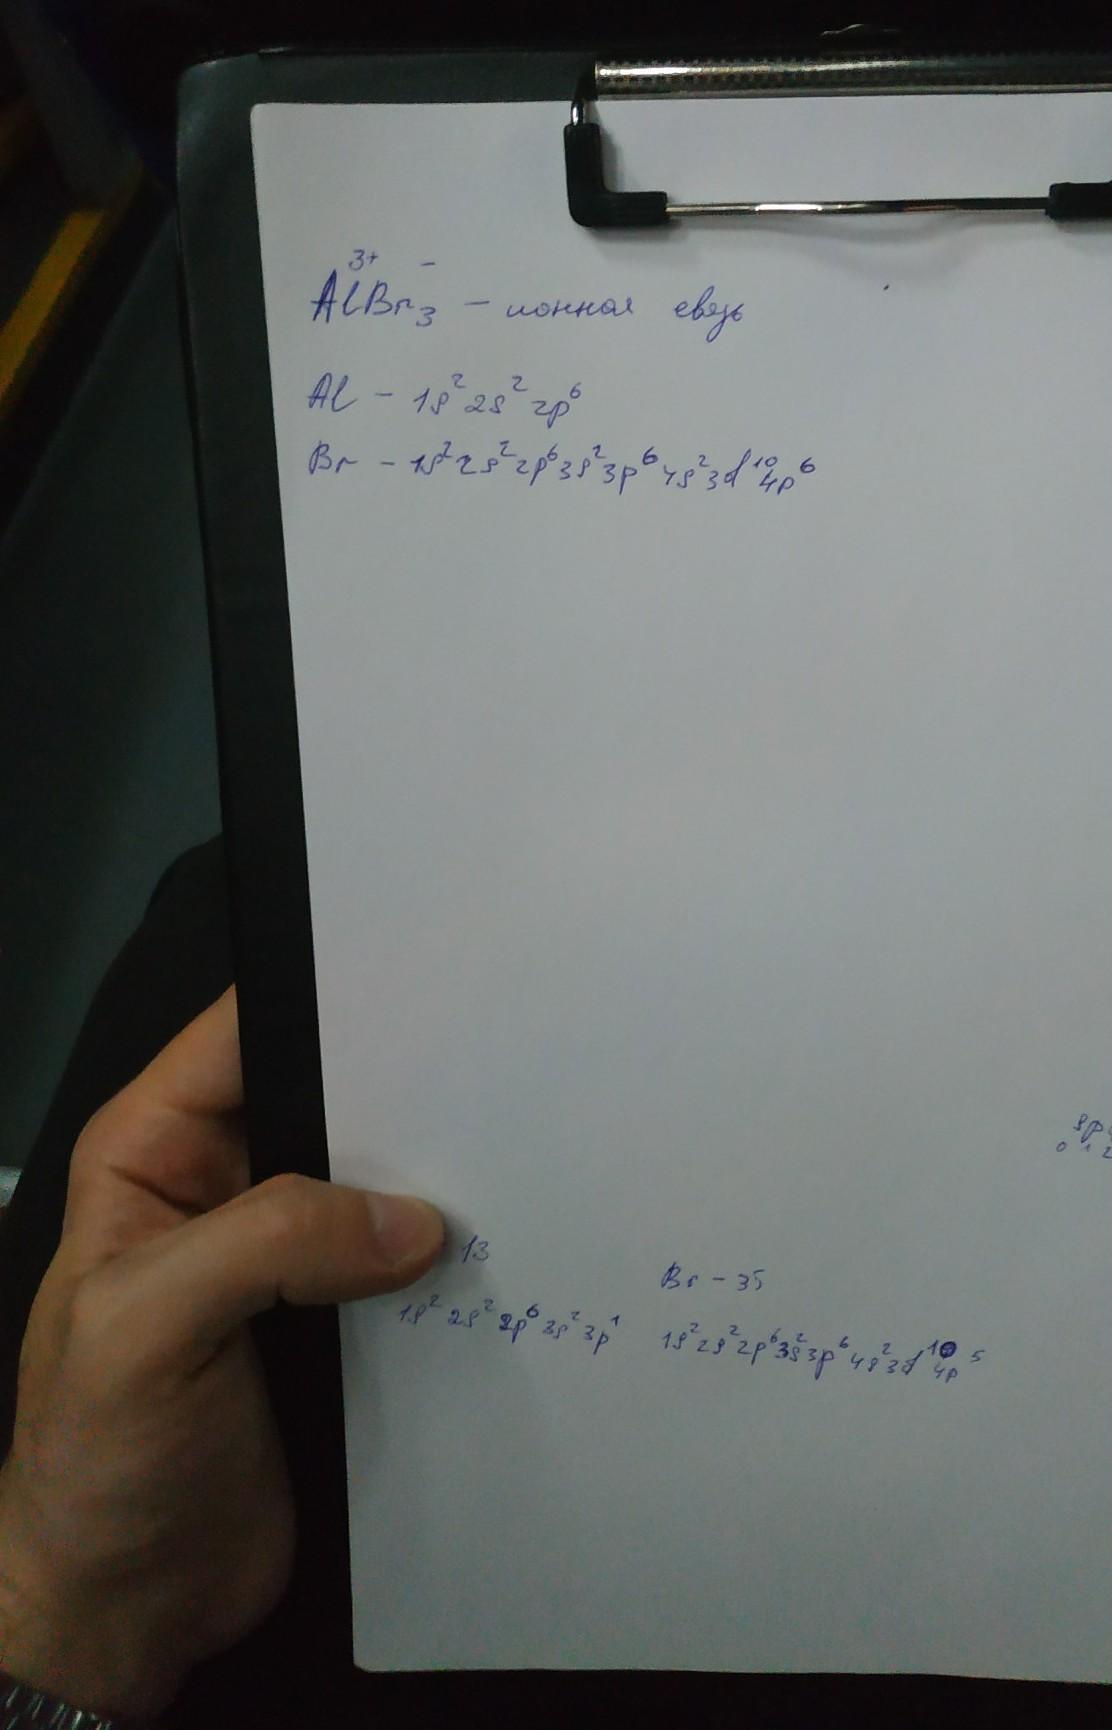 3+ −
AlBr₃ – ионная связь
Al – 1s² 2s² 2p⁶
Br – 1s² 2s² 2p⁶ 3s² 3p⁶ 4s² 3d¹⁰ 4p⁶
sp
0 1 2
13
Br – 35
1s² 2s² 2p⁶ 3s² 3p¹
1s² 2s² 2p⁶ 3s² 3p⁶ 4s² 3d¹⁰ 4p⁵